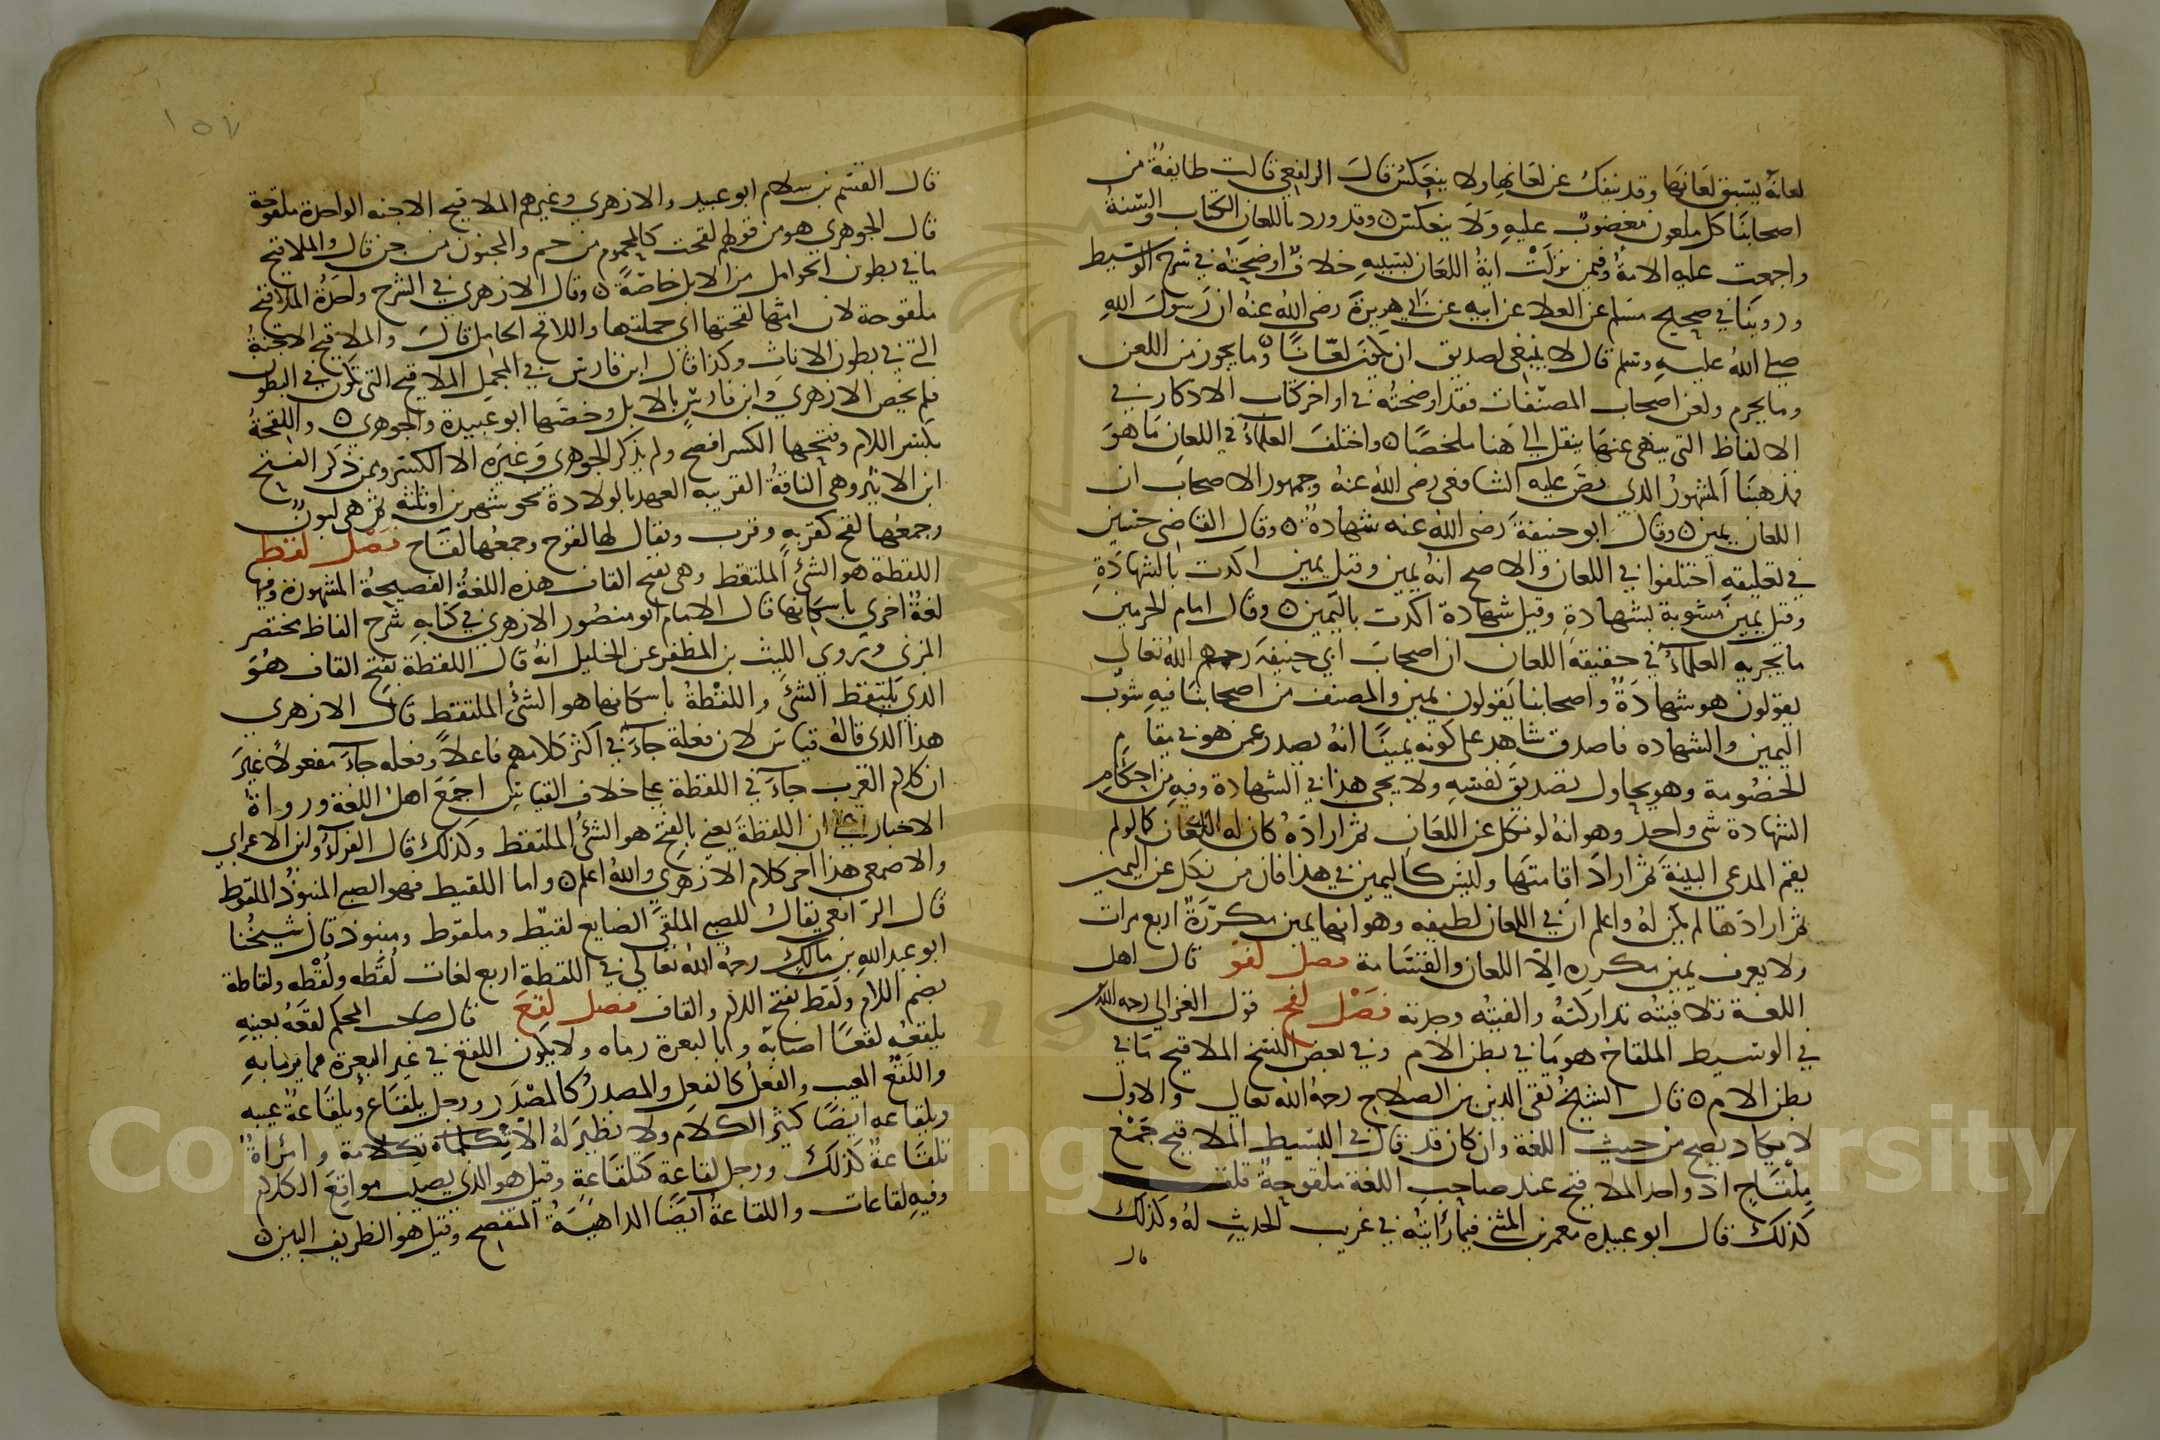 لعانه يسبق لعانها وقد ينفك عن لعانها ولا ينعكس قال الرافعي قالت طايفة من
اصحابنا كل ملعون مغضوب عليه ولا ينعكس وقد ورد باللعان الكتاب والسنة
واجمعت عليه الامة وفيمن نزلت اية اللعان بسببه خلاف اوضحته في شرح الوسيط
وروينا في صحيح مسلم عن العلا عن ابيه عن ابي هريرة رضى الله عنه ان رسول الله
صلى الله عليه وسلم قال لا ينبغي لصديق ان يكون لعانا وما يجوز من اللعن
وما يحرم ولعن اصحاب المصنفات فقد اوضحته في اواخر كتاب الاذكار في
الالفاظ التي ينهى عنها ينقل الى هنا ملخصا واختلف العلماء في اللعان ما هو
فمذهبنا المشهور الذي نص عليه الشافعي رضى الله عنه وجمهور الاصحاب ان
اللعان يمين وقال ابو حنيفة رضى الله عنه شهادة وقال القاضي حسين
في تعليقه اختلفوا في اللعان والاصح انه يمين وقيل يمين اكدت بالشهادة
وقيل يمين مشوبة بشهادة وقيل شهادة اكدت باليمين وقال امام الحرمين
ما يجريه العلماء في حقيقة اللعان ان اصحاب ابي حنيفة رحمهم الله تعالى
يقولون هو شهادة واصحابنا يقولون يمين والمصنف من اصحابنا فيه شوب
اليمين والشهاده فاصدق شاهد على كونه يمينا انه يصدر عمن هو في مقام
الخصومة وهو يحاول تصديق نفسه ولا يجي هذا في الشهادة وفيه من احكام
الشهادة شي واحد وهو انه لو نكل عن اللعان ثم اراده كان له اللعان كما لو لم
يقم المدعي البينة ثم اراد اقامتها وليس كاليمين في هذا فان من نكل عن اليمين
ثم ارادها لم يكن له واعلم ان في اللعان لطيفه وهو انها يمين مكررة اربع مرات
ولا يعرف يمين مكرره الا اللعان والقسامة فصل لفو قال اهل
اللغة تلافيته تداركته والفيته وجدته فصل لقح قول الغزالي رحمه الله
في الوسيط الملقاح هو ما في بطن الام وفي بعض النسخ الملاقيح ما في
بطن الام قال الشيخ تقي الدين بن الصلاح رحمه الله تعالى والاول
لا يكاد يصح من حيث اللغة وان كان قد قال في البسيط الملاقيح جمع
ملقاح اذ واحد الملاقيح عند صاحب اللغة ملقوحة قلت
كذلك قال ابو عبيده معمر بن المثنى فيما رايته في غريب الحديث له وكذلك
قال
١٥٧
قال القسم بن سلام ابو عبيد والازهري وغيرهم الملاقيح الاجنه الواحدة ملقوحة
قال الجوهري هو من قولهم لقحت كالمحموم من حم والمجنون من جن قال والملاقيح
ما في بطون الحوامل من الابل خاصة وقال الازهري في الشرح واحدة الملاقيح
ملقوحة لان امها لقحتها اي حملتها واللاقح الحامل قال والملاقيح الاجنة
التي في بطون الاناث وكذا قال ابن فارس في المجمل الملاقيح التي تكون في البطون
فلم يخص الازهري وابن فارس بالابل وخصها ابو عبيدة والجوهري واللقحة
بكسر اللام وفتحها الكسر افصح ولم يذكر الجوهري وغيره الا الكسر وممن ذكر الفتح
ابن الاثير وهي الناقة القريبه العهد بالولادة نحو شهرين او ثلثة ثم هي لبون
وجمعها لقح كقربه وقرب ويقال لها لقوح وجمعها لقاح فصل لقط
اللقطة هو الشئ الملتقط وهي بفتح القاف هذه اللغة الفصيحة المشهورة وفيها
لغة اخرى باسكانها قال الامام ابو منصور الازهري في كتابه شرح الفاظ مختصر
المزني وتروي الليث بن المظفر عن الخليل انه قال اللقطة بفتح القاف هو
الذي يلتقط الشئ واللقطة باسكانها هو الشئ الملتقط قال الازهري
هذا الذي قاله قياس لان فعلة جاء في اكثر كلامهم فاعلا وفعله جاء مفعولا غير
ان كلام العرب جاء في اللقطة على خلاف القياس اجمع اهل اللغة ورواة
الاخبار على ان اللقطة يعني بالفتح هو الشئ الملتقط وكذلك قال الفراء وابن الاعرابي
والاصمعي هذا اخر كلام الازهري والله اعلم واما اللقيط فهو الصبي المنبوذ الملقوط
قال الرافعي يقال للصبي الملقى الضايع لقيط وملقوط ومنبوذ قال شيخنا
ابو عبد الله بن مالك رحمه الله تعالى في اللقطة اربع لغات لقطه ولقطه ولقاطة
بضم اللام ولقط بفتح اللام والقاف فصل لقع قال صاحب المحكم لقعه بعينه
يلقعه لقعا اصابه وابا لبعرة رماه ولا يكون اللقع في غير البعرة مما يرما به
واللقع العيب والفعل كالفعل والمصدر كالمصدر ورجل يلقاع وتلقاعة عيبه
وبلقاعه ايضا كثير الكلام ولا نظير له الا تكلامة وامراة
تلقاعة كذلك ورجل لقاعة كتلقاعة وقيل هو الذي يصيب مواقع الكلام
وفيه لقاعات واللقاعة ايضا الداهية المتفصح وقيل هو الظريف البين
Copyright © King Saud University